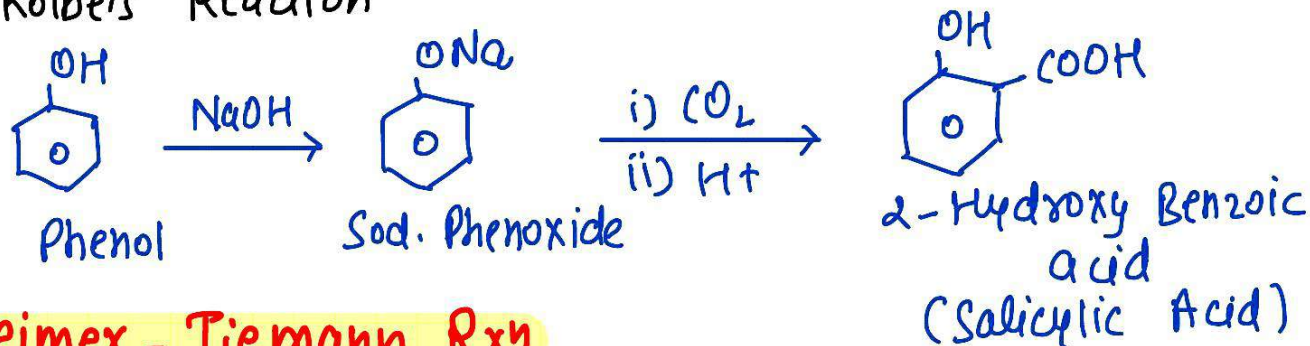 Kolbe's Reaction
OH
NaOH
Phenol
ONa
Sod. Phenoxide
i) CO₂
ii) H+
OH
COOH
2-Hydroxy Benzoic
acid
(Salicylic Acid)
eimer - Tiemann Rxn